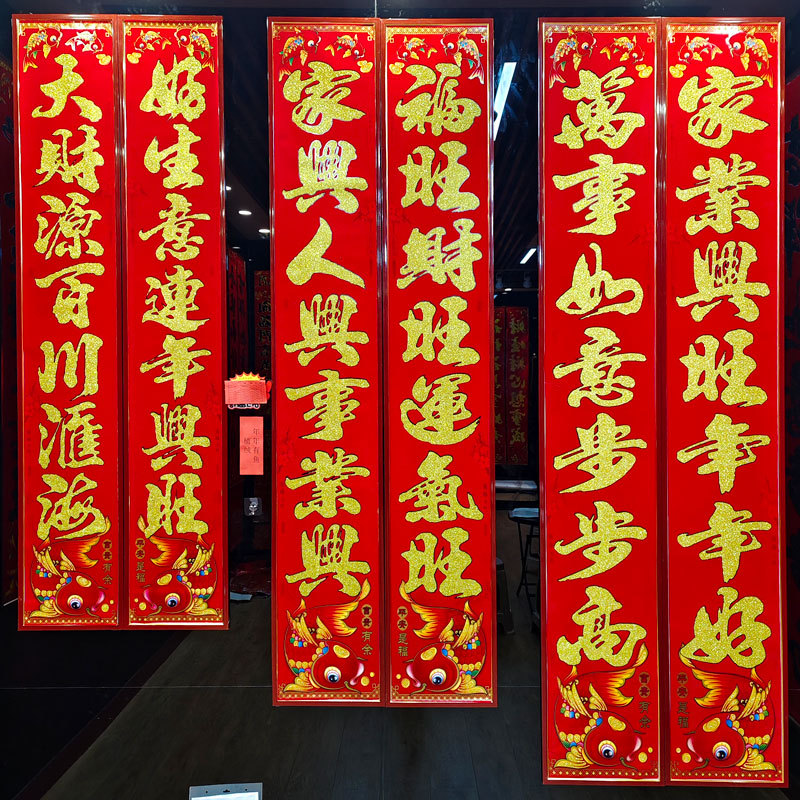 家業興旺年年好
平安是福
萬事如意步步高
富貴有余
福旺財旺運氣旺
平安是福
家興人興事業興
富貴有余
年年有魚
好生意連年興旺
平安是福
大財源百川滙海
富貴有余